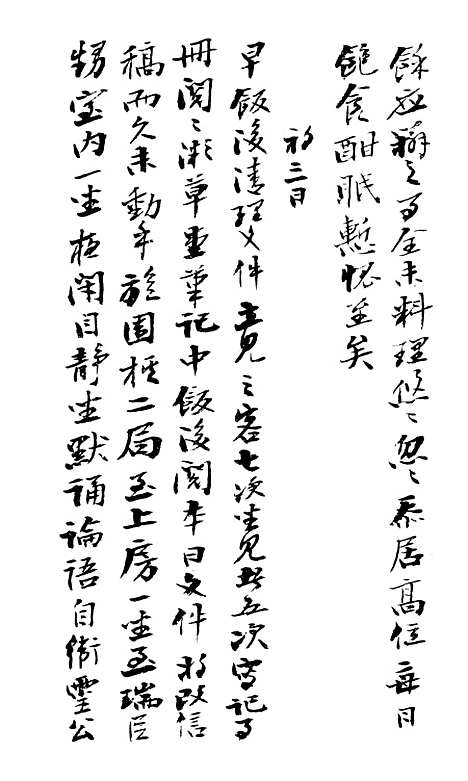 餘應辦之事全未料理悠〻忽〻忝居高位每日
飽食酣眠慙愧至矣
初三日
早飯後清理文件立見之客七次坐見者五次寫記事
冊閱〻微草堂筆記中飯後閱本日文件將改信
稿而久未動手旋圍棋二局至上房一坐至瑞臣
甥室內一坐極閉目靜坐默誦論語自衛靈公